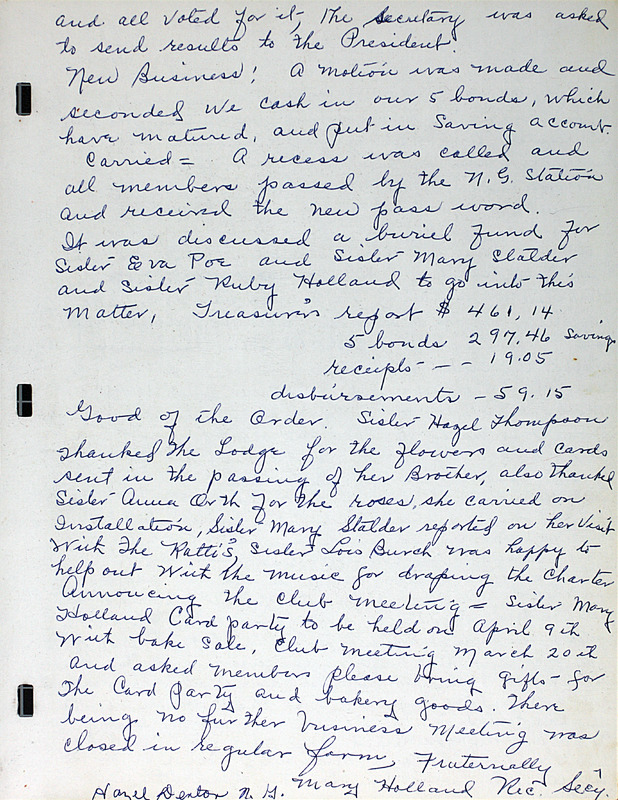 and all voted for it, The Secretary was asked
to send results to the President.
New Business! A motion was made and
seconded we cash in our 5 bonds, which
have matured, and put in Saving account.
Carried = A recess was called and
all members passed by the N.G. Station
and received the new pass word.
It was discussed a buriel fund for
Sister Eva Poe and Sister Mary Stalder
and Sister Ruby Holland to go into this
Matter, Treasurer's report $ 461,14
5 bonds 297.46 Savings
receipts - - - 19.05
disbursements - 59.15
Good of the Order. Sister Hazel Thompson
thanked the Lodge for the flowers and cards
sent in the passing of her Brother, also thanked
Sister Anna Orth for the roses, she carried on
Installation, Sister Mary Stalder reported on her visit
With the Ratti's, Sister Lois Burch was happy to
help out with the music for draping the Charter
Announcing the club meeting = Sister Mary
Holland Card party to be held on April 9th
With bake sale, club meeting March 20th
and asked members please bring gifts for
the Card party and bakery goods. There
being no further business Meeting was
closed in regular form, Fraternally
Hazel Denton N.G. Mary Holland Rec. Sec'y.